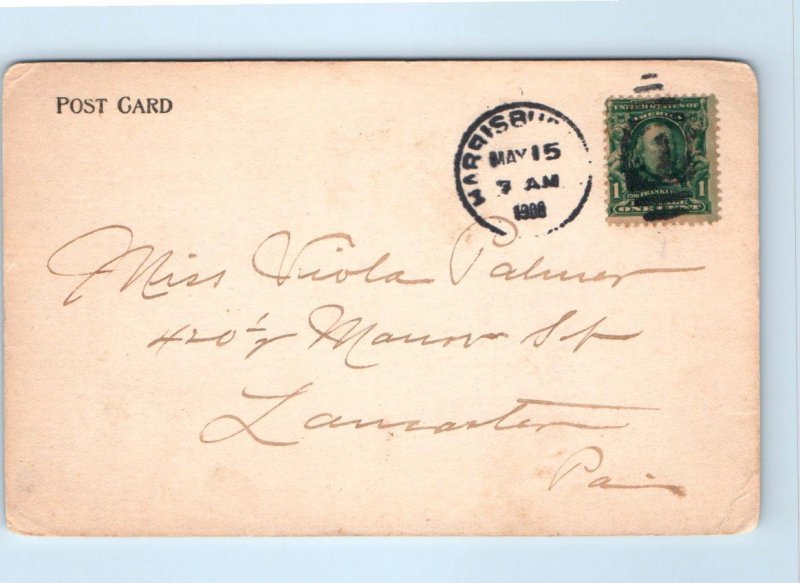 POST CARD
HARRISBU
MAY 15
7 AM
UNITED STATES OF
AMERICA
1 1
ONE CENT
Miss Viola Palmer
420 1/2 Manor St
Lancaster
Pa